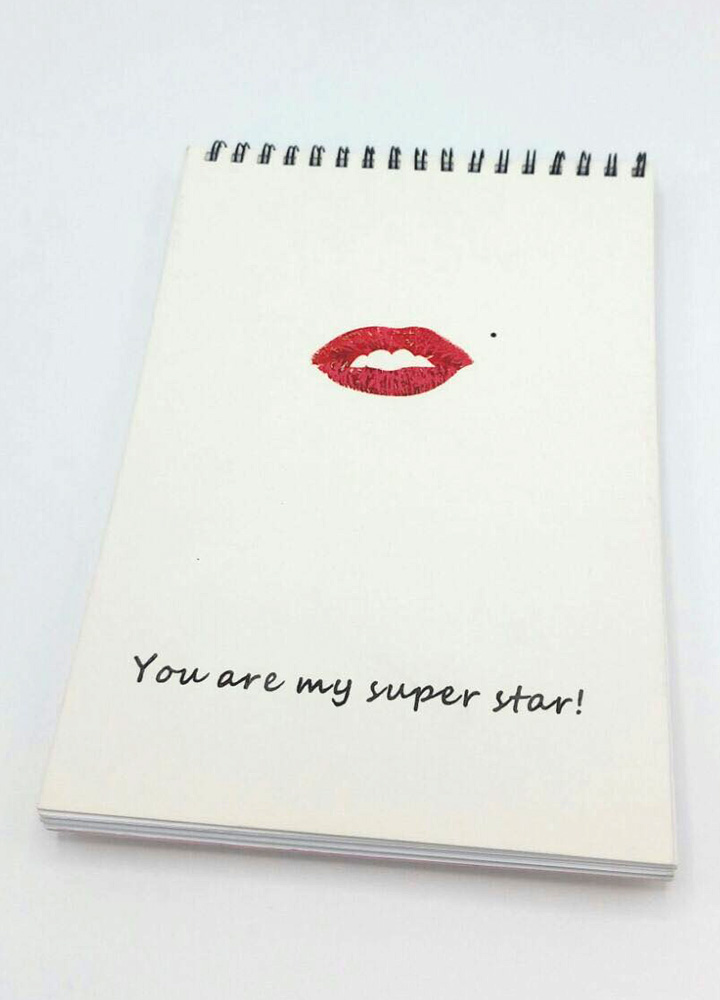 You are my super star!